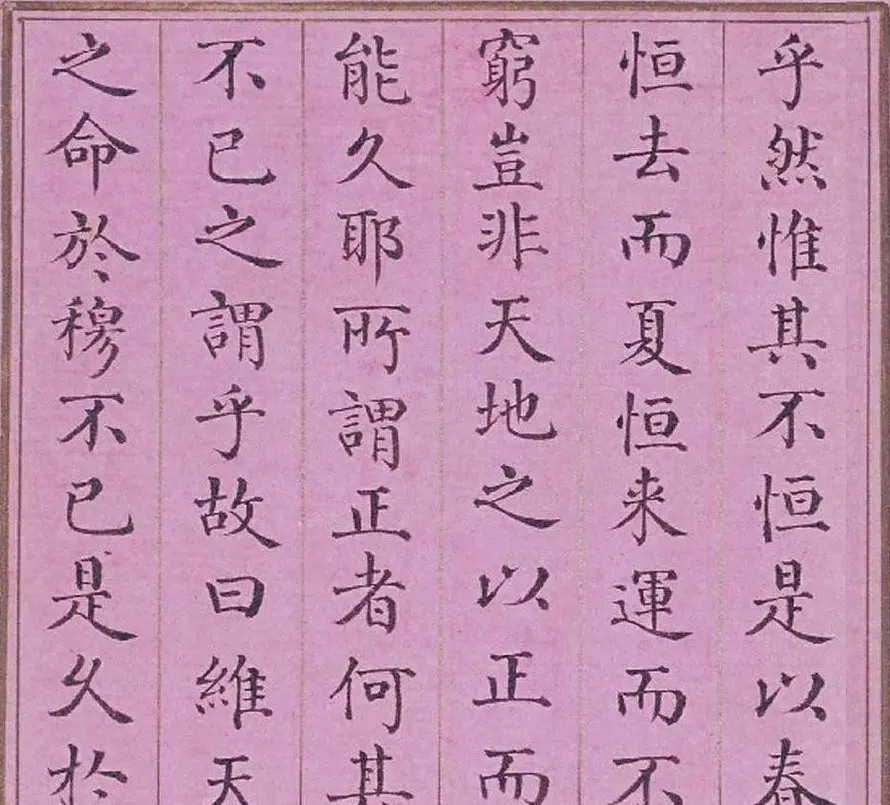 乎然惟其不恒是以春
恒去而夏恒来運而不
窮豈非天地之以正而
能久耶所謂正者何其
不已之謂乎故曰維天
之命於穆不已是久於